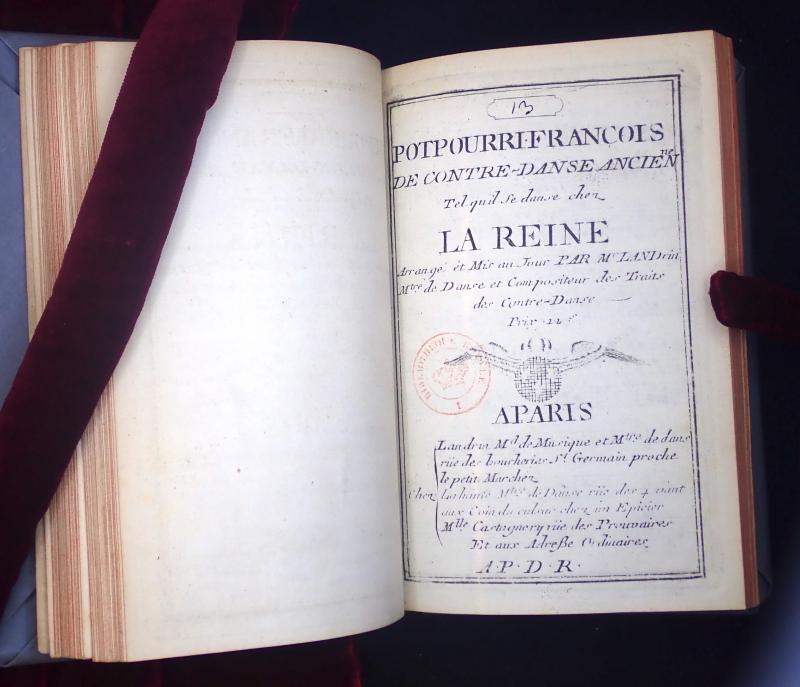 13
POTPOURRI·FRANCOIS
DE CONTRE-DANSE ANCIEN.ne
Tel quil Se danse chez
LA REINE
Arrangé et Mis au Jour PAR Mr. LANDrin
Mtre de Danse et Compositeur des Traits
des Contre-Danse
Prix
BIBLIOTHEQUE ROYALE
I
APARIS
Landrin Md de Musique et Mtre de dans
rüe des boucheries St. Germain proche
le petit Marchez
Chez Lahante Mtre de Danse rüe des 4 vant
aux Coin du culsac chez un Epicier
Mlle Castagnery rüe des Prouvaires
Et aux Adreße Ordinaires
A·P·D·R·